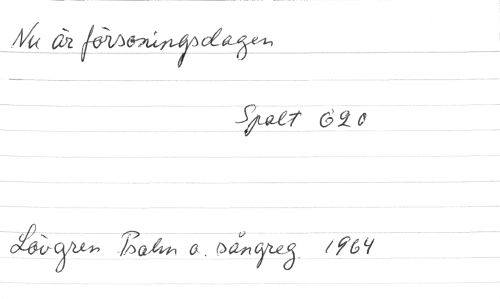 Nu är försoningsdagen
Spalt 620
Lövgren Psalm o. sångreg. 1964